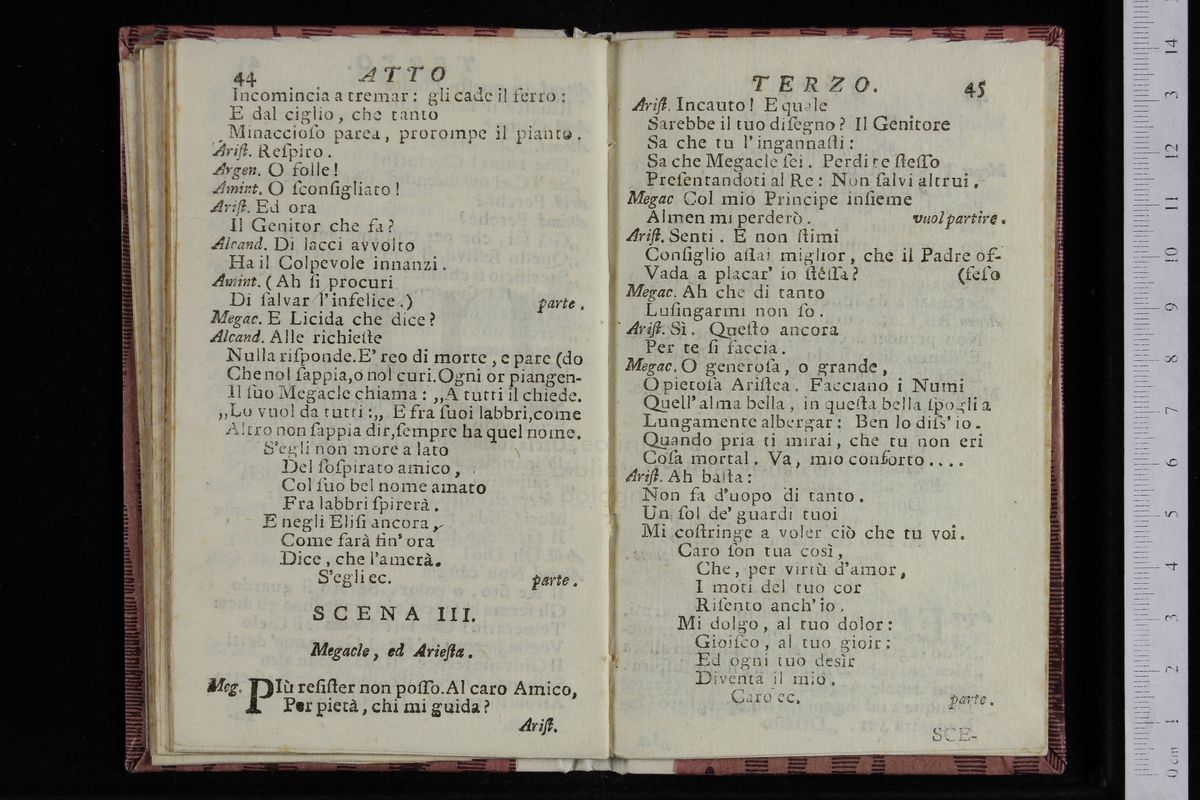 44 ATTO
Incomincia a tremar: gli cade il ferro:
E dal ciglio, che tanto
Minaccioſo parea, prorompe il pianto.
Ariſt. Reſpiro.
Argen. O folle!
Amint. O ſconſigliato!
Ariſt. Ed ora
Il Genitor che fa?
Alcand. Di lacci avvolto
Ha il Colpevole innanzi.
Amint. (Ah ſi procuri
Di ſalvar l'infelice.) parte.
Megac. E Licida che dice?
Alcand. Alle richieſte
Nulla riſponde. E' reo di morte, e pare (do
Che nol ſappia, o nol curi. Ogni or piangen-
Il ſuo Megacle chiama: ,,A tutti il chiede.
,,Lo vuol da tutti:,, E fra ſuoi labbri, come
Altro non ſappia dir, ſempre ha quel nome.
S'egli non more a lato
Del ſoſpirato amico,
Col ſuo bel nome amato
Fra labbri ſpirerà.
E negli Eliſi ancora,
Come farà fin' ora
Dice, che l'amerà.
S'egli ec. parte.
SCENA III.
Megacle, ed Arieſta.
Meg. PIù reſiſter non poſſo. Al caro Amico,
Per pietà, chi mi guida?
Ariſt.
TERZO. 45
Ariſt. Incauto! E quale
Sarebbe il tuo diſegno? Il Genitore
Sa che tu l'ingannaſti:
Sa che Megacle ſei. Perdi te ſteſſo
Preſentandoti al Re: Non ſalvi altrui.
Megac Col mio Principe inſieme
Almen mi perderò. vuol partire.
Ariſt. Senti. E non ſtimi
Conſiglio aſſai miglior, che il Padre of-
Vada a placar' io ſteſſa? (feſo
Megac. Ah che di tanto
Luſingarmi non ſo.
Ariſt. Sì. Queſto ancora
Per te ſi faccia.
Megac. O generoſa, o grande,
O pietoſa Ariſtea. Facciano i Numi
Quell' alma bella, in queſta bella ſpoglia
Lungamente albergar: Ben lo diſs' io.
Quando pria ti mirai, che tu non eri
Coſa mortal. Va, mio conforto....
Ariſt. Ah baſta:
Non fa d'uopo di tanto.
Un ſol de' guardi tuoi
Mi coſtringe a voler ciò che tu voi.
Caro ſon tua così,
Che, per virtù d'amor,
I moti del tuo cor
Riſento anch' io.
Mi dolgo, al tuo dolor:
Gioiſco, al tuo gioir:
Ed ogni tuo desìr
Diventa il mio.
Caro ec. parte.
SCE-
0 cm 1 2 3 4 5 6 7 8 9 10 11 12 13 14